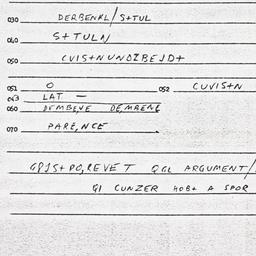 030 DERBENAL/S+TUL
040 S+TULN
050 CVIS+NUNDZBEJD+
051 0 052 CUVIS+N
053 LAT —
060 DEMBEVE DEMRENE
070 PARE,NCE
GPJS+PO,REVET QGL ARGUMENT/
GI CUNZER HOB+ A SPOR